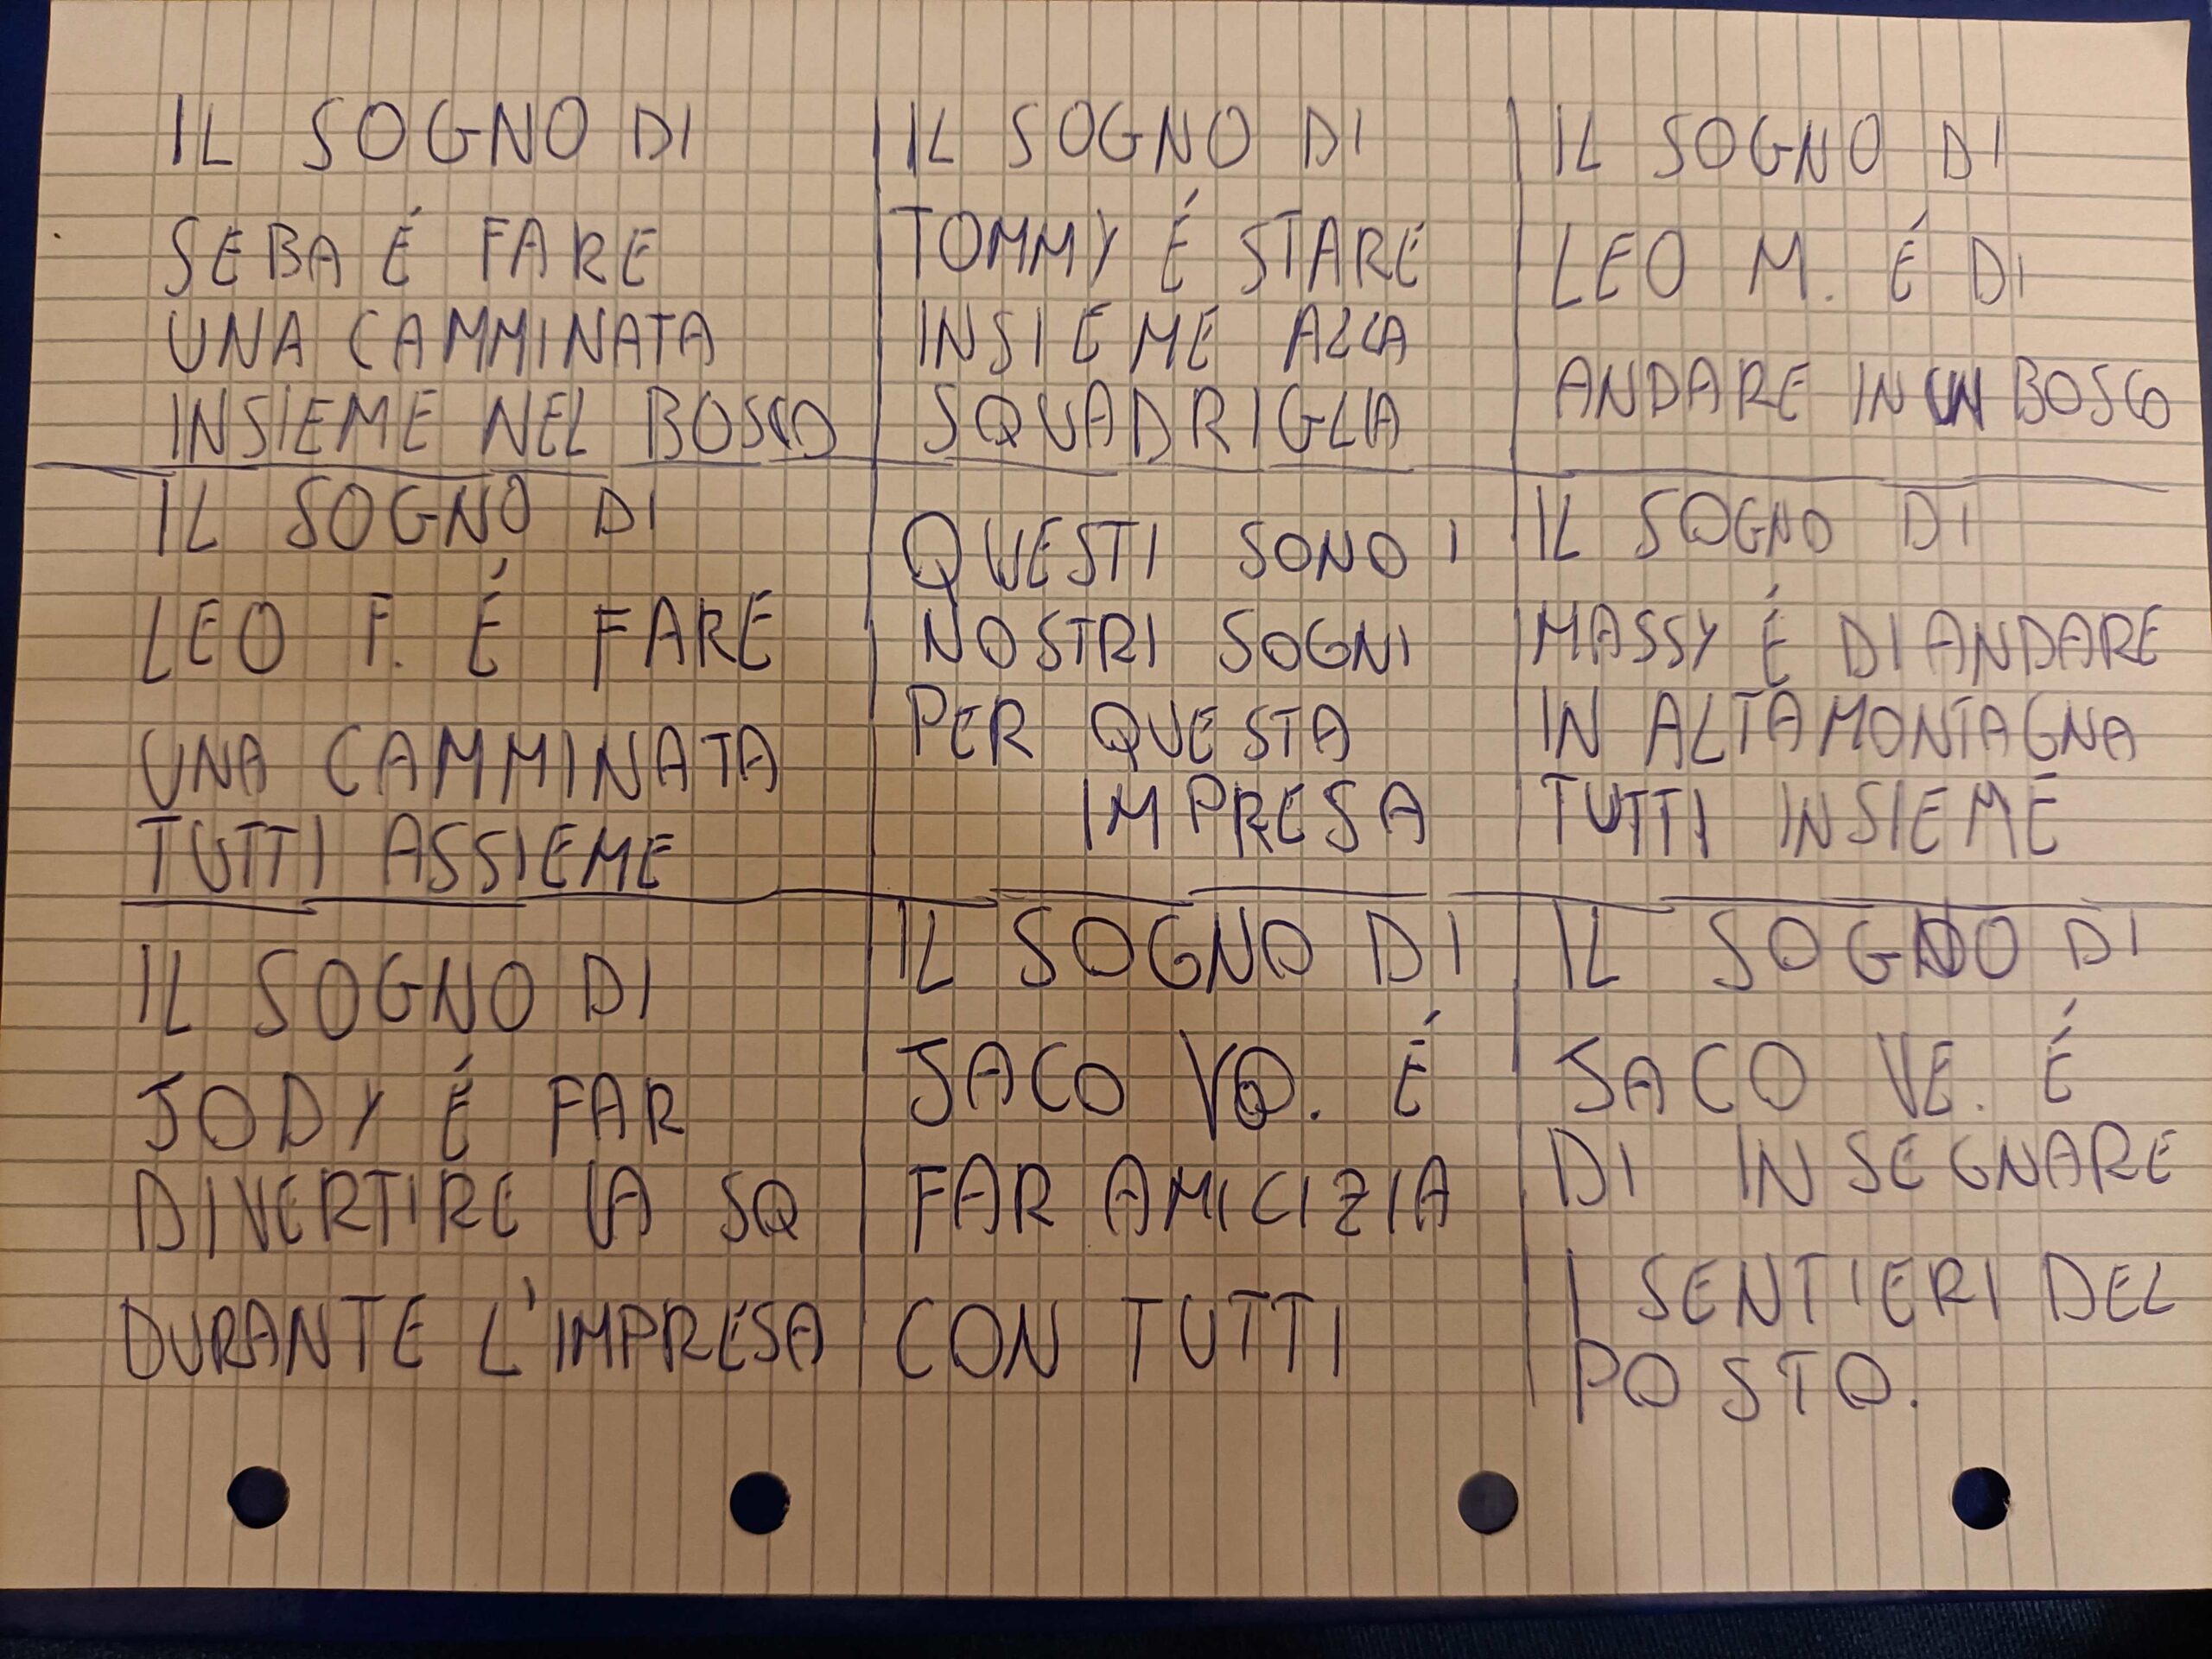 IL SOGNO DI
SEBA É FARE
UNA CAMMINATA
INSIEME NEL BOSCO
IL SOGNO DI
TOMMY É STARE
INSIEME ALLA
SQUADRIGLIA
IL SOGNO DI
LEO M. É DI
ANDARE IN UN BOSCO
IL SOGNO DI
LEO F. É FARE
UNA CAMMINATA
TUTTI ASSIEME
QUESTI SONO I
NOSTRI SOGNI
PER QUESTA
IMPRESA
IL SOGNO DI
MASSY É DI ANDARE
IN ALTA MONTAGNA
TUTTI INSIEME
IL SOGNO DI
JODY É FAR
DIVERTIRE LA SQ
DURANTE L'IMPRESA
IL SOGNO DI
JACO VO. É
FAR AMICIZIA
CON TUTTI
IL SOGNO DI
JACO VE. É
DI INSEGNARE
I SENTIERI DEL
POSTO.